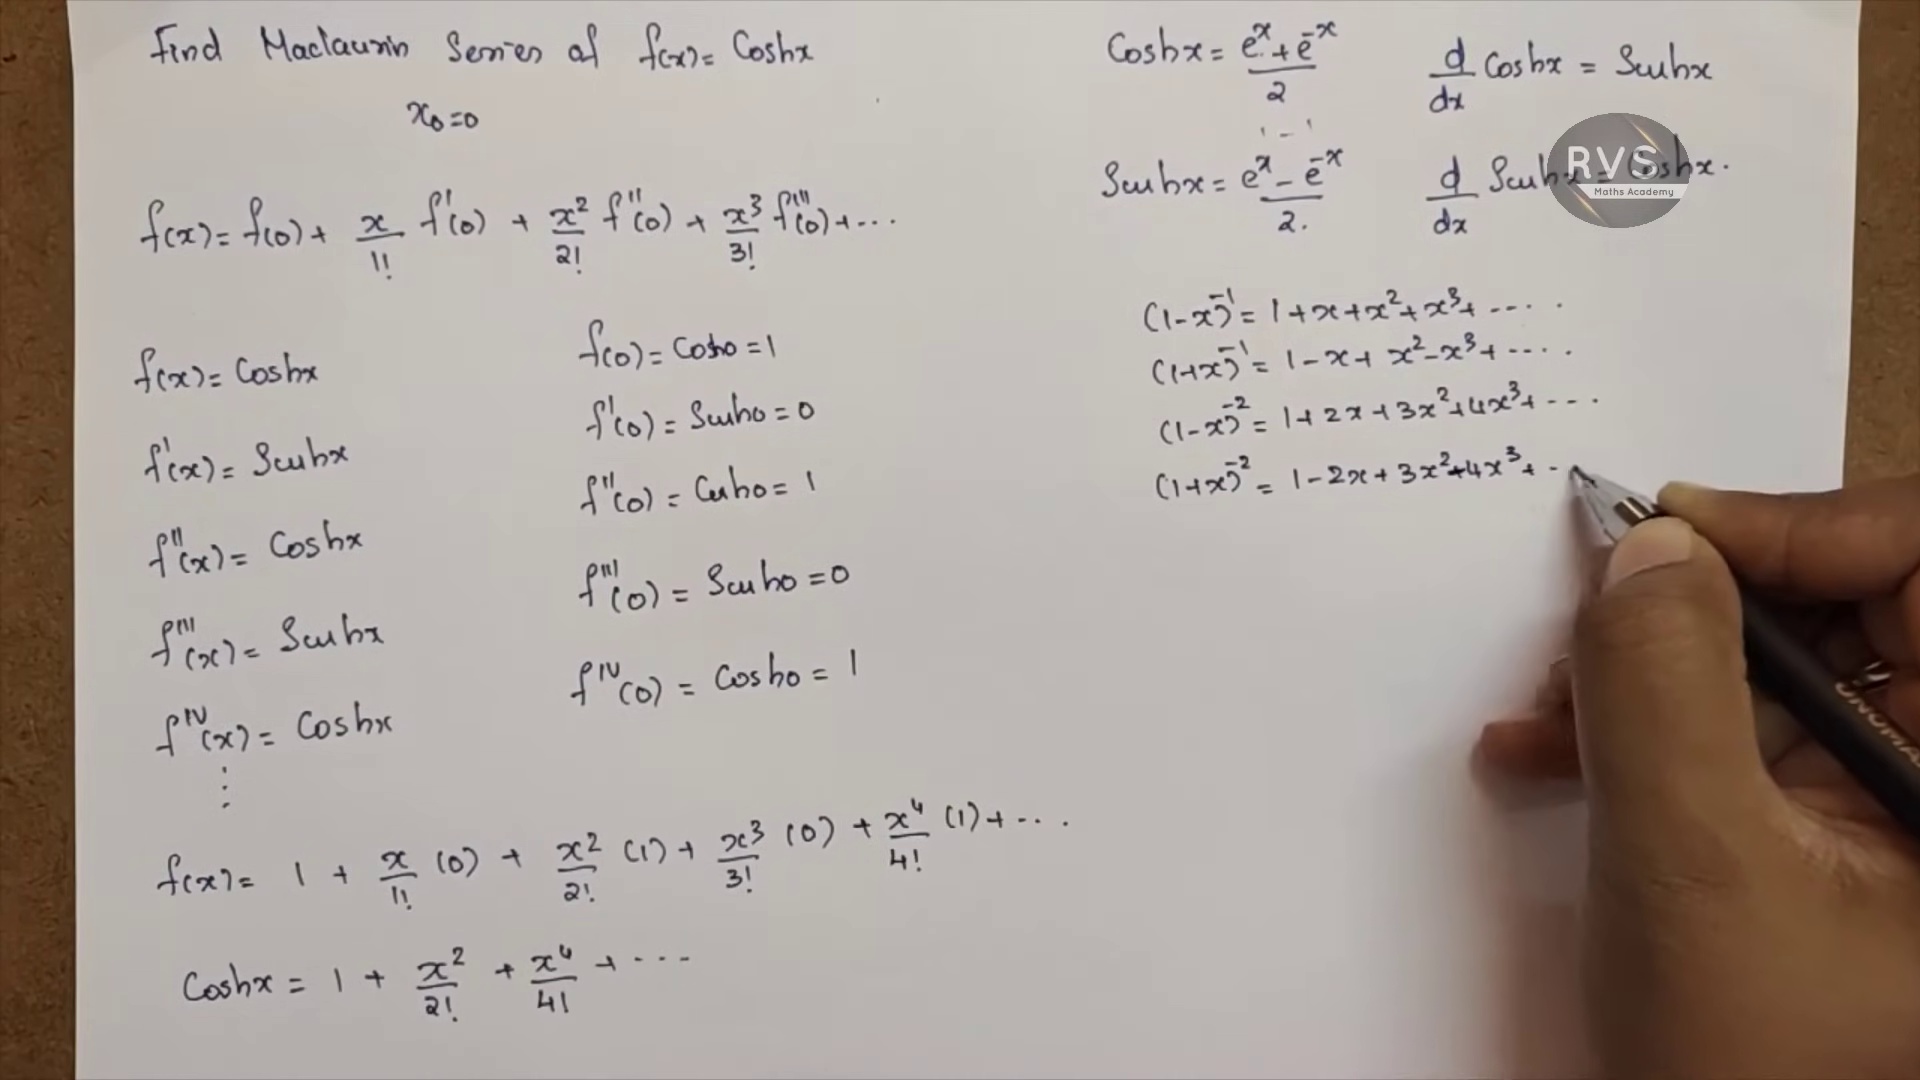 Find Maclaurin Series of f(x) = Coshx
x₀=0
f(x) = f(0) + x/1! f'(0) + x²/2! f''(0) + x³/3! f'''(0) + ...
f(x) = Coshx
f(0) = Cosh0 = 1
f'(x) = Sinhx
f'(0) = Sinh0 = 0
f''(x) = Coshx
f''(0) = Cosh0 = 1
f'''(x) = Sinhx
f'''(0) = Sinh0 = 0
f^IV(x) = Coshx
f^IV(0) = Cosh0 = 1
⋮
f(x) = 1 + x/1! (0) + x²/2! (1) + x³/3! (0) + x⁴/4! (1) + ...
Coshx = 1 + x²/2! + x⁴/4! + ...
Coshx = (eˣ + e⁻ˣ)/2
d/dx Coshx = Sinhx
Sinhx = (eˣ - e⁻ˣ)/2.
d/dx Sinhx = Coshx.
RVS
Maths Academy
(1-x)⁻¹ = 1+x+x²+x³+ .....
(1+x)⁻¹ = 1-x+x²-x³+ .....
(1-x)⁻² = 1+2x+3x²+4x³+ ...
(1+x)⁻² = 1-2x+3x²-4x³+ ..